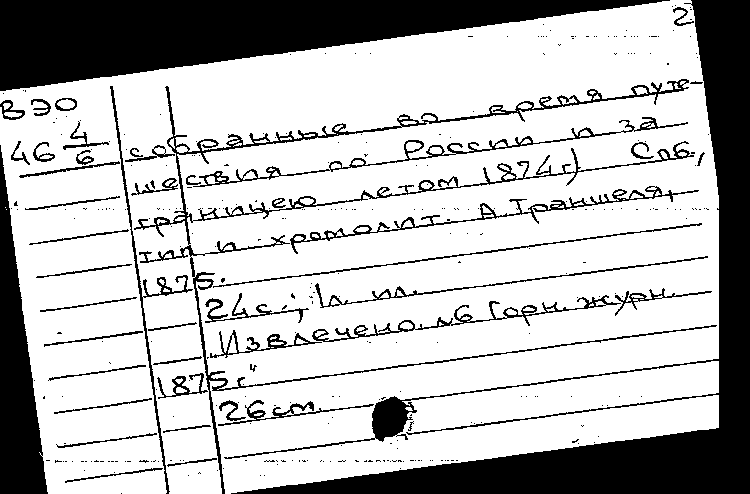 2
ВЭО
46 4/6
собранные во время путе-
шествия по России и за
границею летом 1874г.) Спб.,
тип и хромолит. А. Траншеля,
1875.
24с.; 1л. ил.
"Извлечено. №6 Горн. журн.
1875г."
26см.